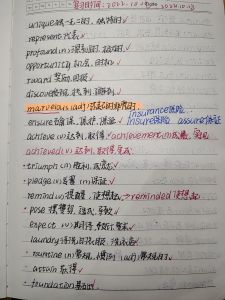 复习时间: 2022.10.1
unique 独一无二的, 独特的
represent 代表
profound (adj) 深刻的
opportunity 机会
reward 奖励, 回报
discover 发现, 找到
marvelous (adj)
ensure 确保, 保护, 保证
insurance 保险
insure 保险 assure 保证
achieve (v) 达到, 取得
achievement (n) 成就
achieved (v) 达到, 取得, 完成
triumph (n) 胜利, 成就
pledge (n) (v) 保证
remind (v) 提醒, 使想起
reminded 使想起
pose 摆姿势, 造成, 导致
expect (v) 期待, 预料
laundry
routine (n) 常规
attain 获得
foundation 基础